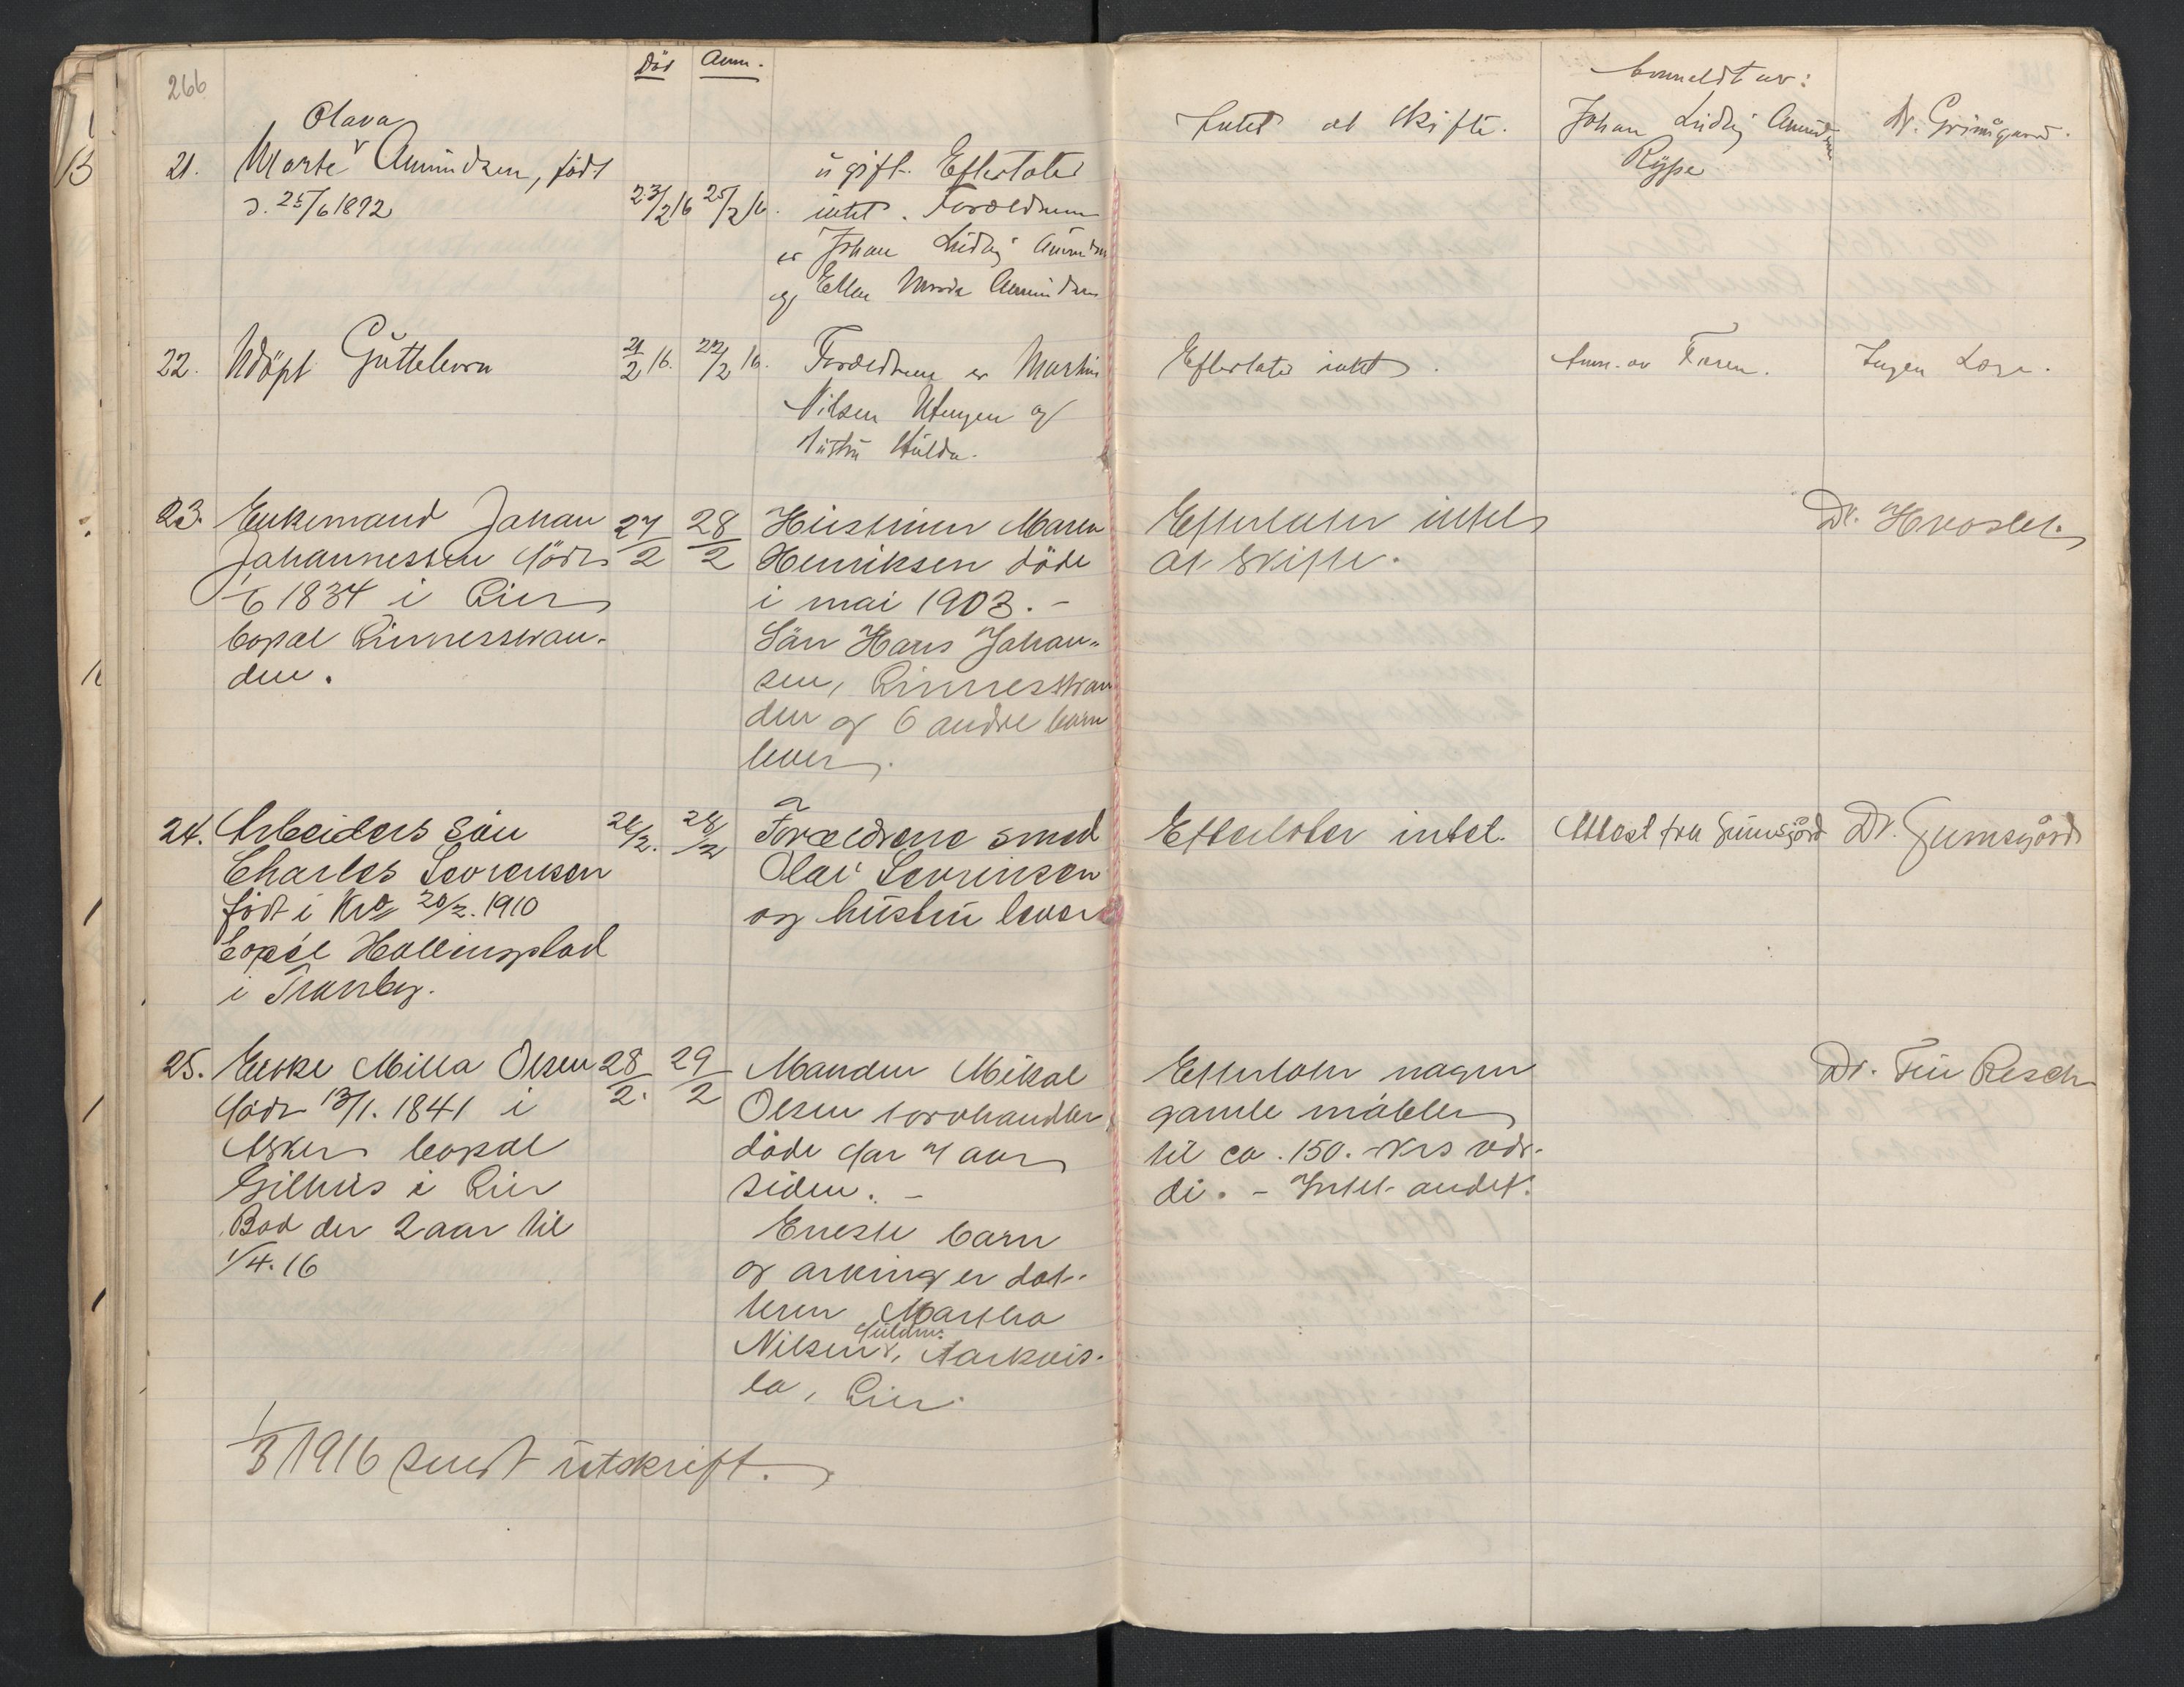 266
Död Anm.
Anmeldt av:
Olava
21. Marte Amundsen, födt
d. 25/6 1892
23/2 16 25/2 16.
ugift. Efterlater
intet. Forældrene
er Johan Ludvig Amundsen
og Ellen Amundsen
Intet at skifte.
Johan Ludvig Amundsen
Rÿpe
Dr. Grimsgaard.
22. Udöpt Guttebarn
21/2 16. 22/2 16.
Forældrene er Martin
Nilsen Utengen og
Hustru Hulda.
Efterlater intet.
Anm. av Faren.
Ingen Læge.
23. Enkemand Johan
Johannessen födt
1/6 1834 i Lier
bopæl Linnesstran-
den.
27/2 28/2
Hustruen Maren
Henriksen döde
i mai 1903. -
Sön Hans Johan-
sen, Linnesstran
den og 6 andre barn
lever.
Efterlater intet
at skifte.
Dr. Hvoslef.
24. Arbeiders sön
Charles Sevrensen
födt i Kra 20/2. 1910
bopæl Hallingstad
i Tranby.
26/2. 28/2
Forældrene smed
Olaf Sevrinsen
og hustru lever
Efterlater intet.
Attest fra Grimsgård
Dr. Grimsgård
25. Enke Milla Olsen
födt 13/1. 1841 i
Asker bopæl
Gilhus i Lier
Bod der 2 aar til
1/4. 16
28/2. 29/2
Manden Mikal
Olsen
döde for 7 aar
siden. -
Eneste barn
og arving er dat-
teren Martha
Nilsen, Aarkvis-
la, Lier.
Efterlater nogen
gamle möbler
til ca. 150. Krs vær-
di. - Intet andet.
Dr. Finn Resch
1/3 1916 sendt utskrift.